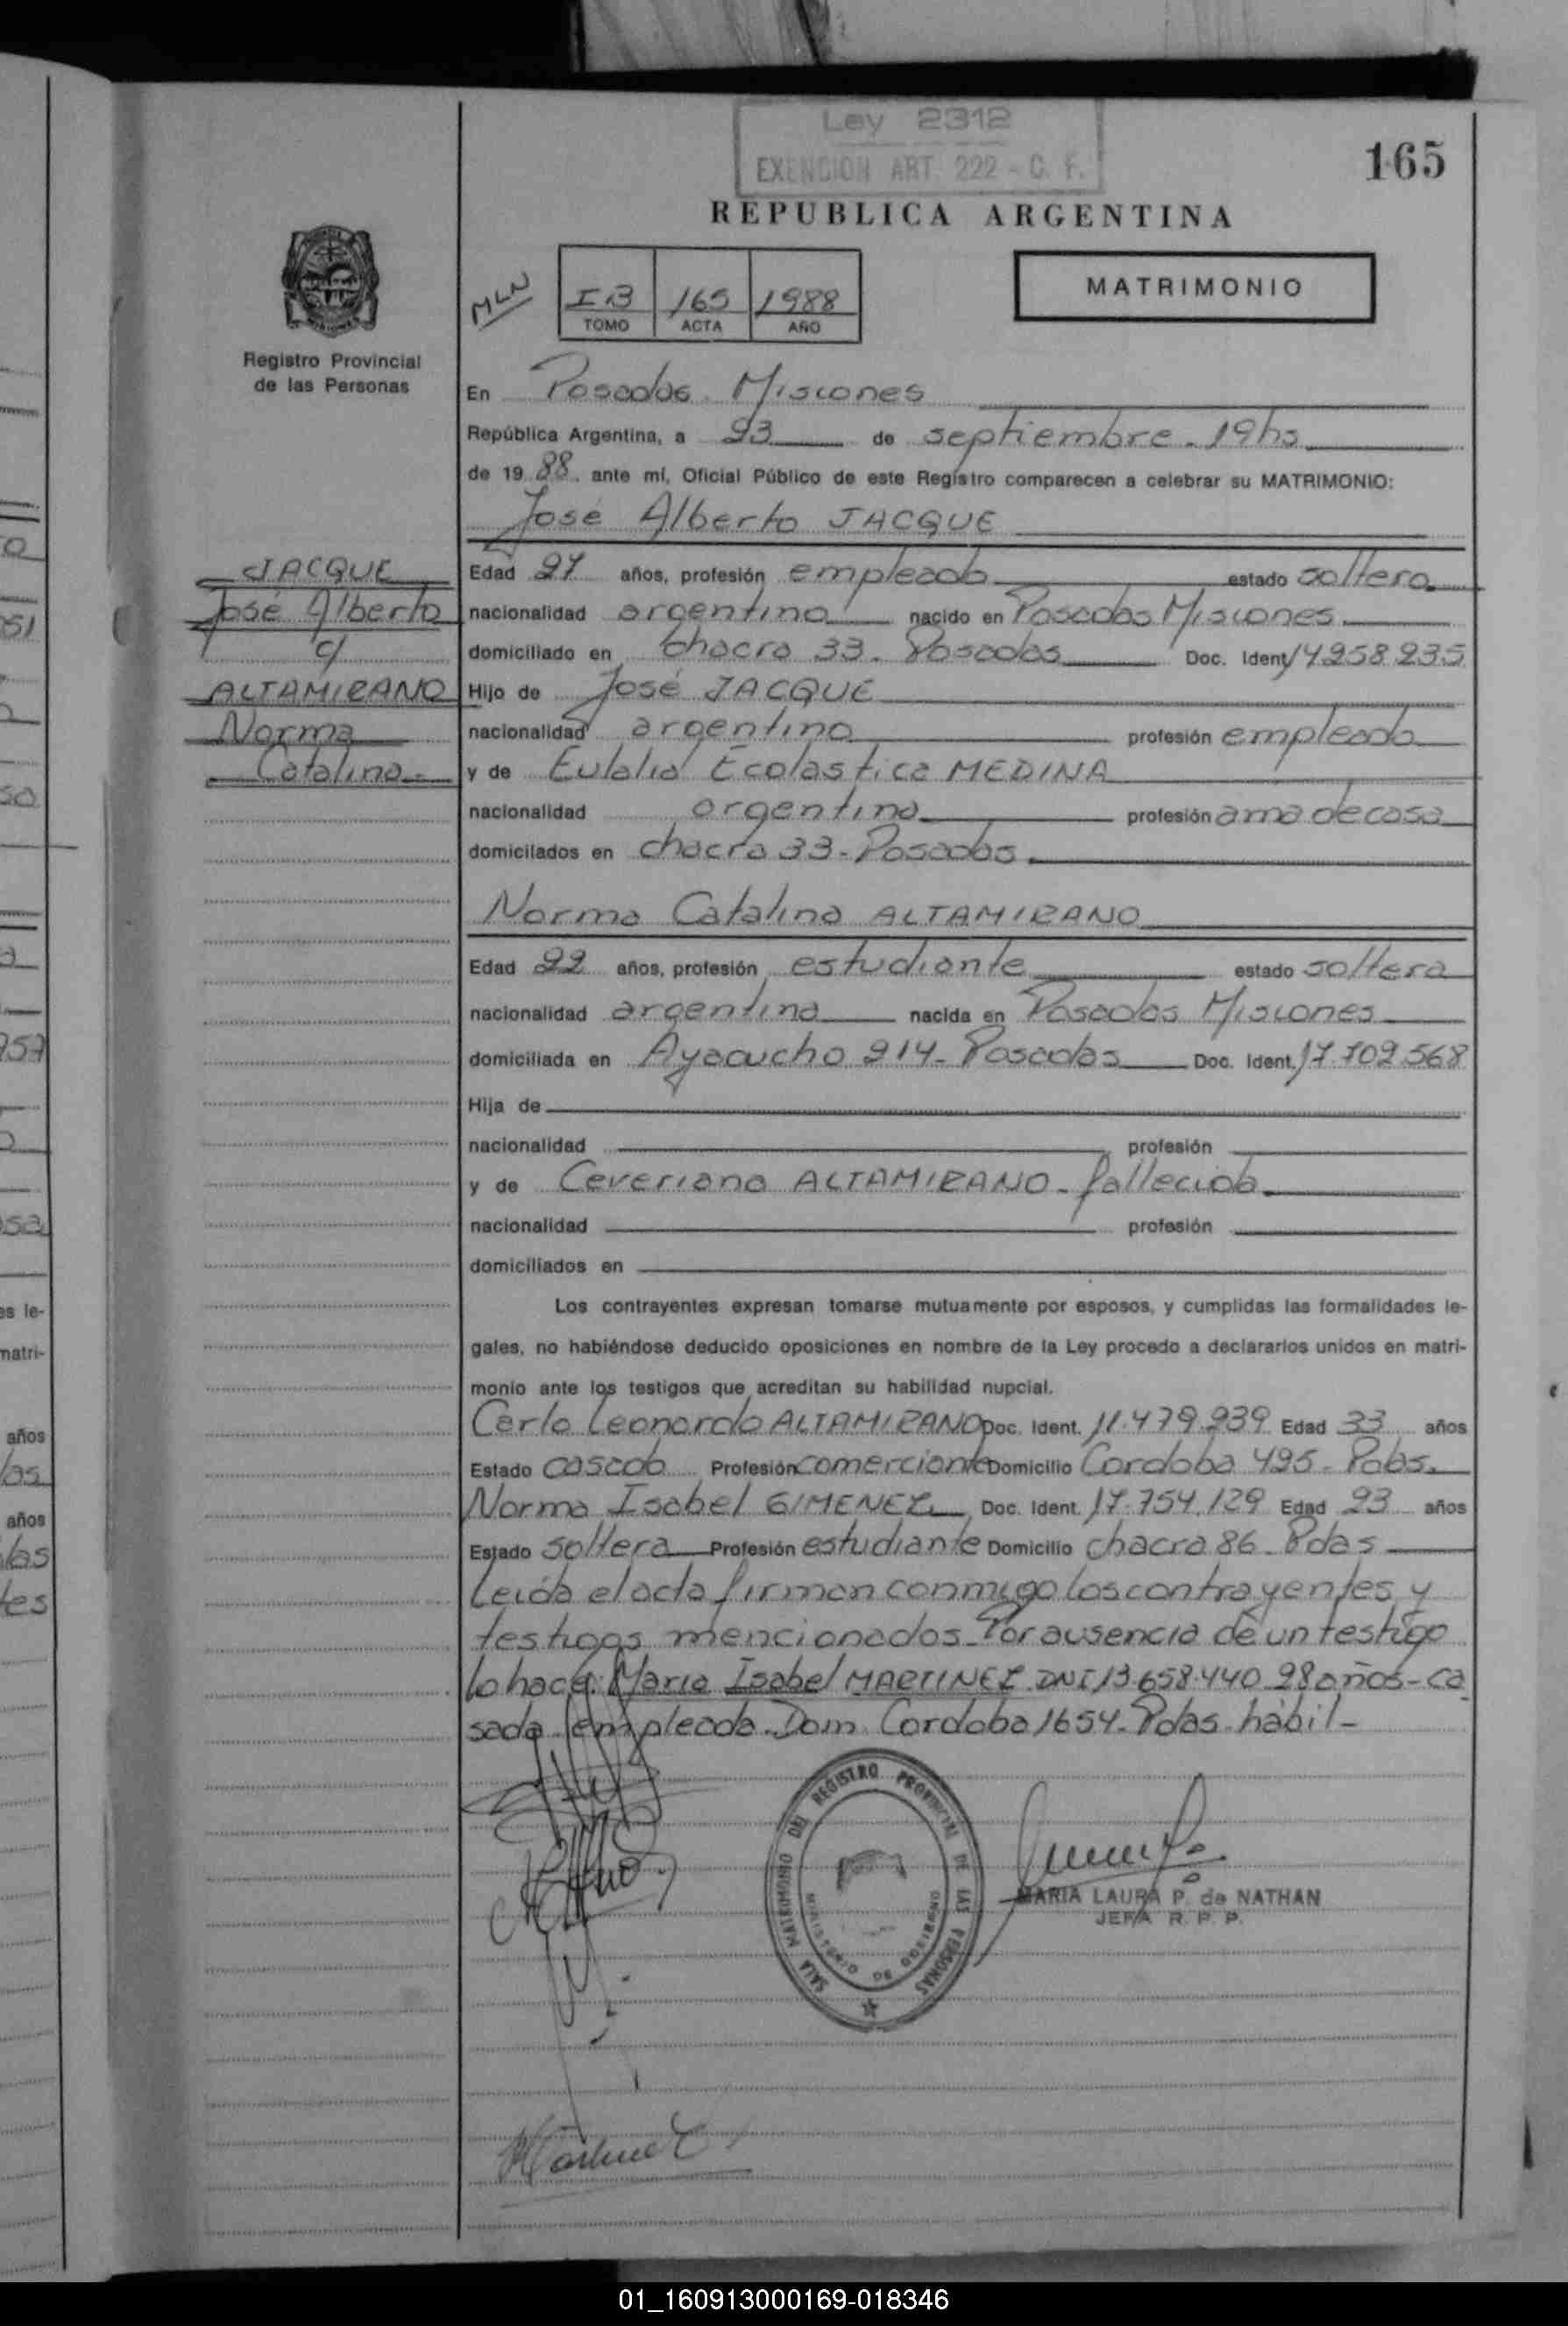 Ley 2312
EXENCION ART. 222 - C. F.
165
REPUBLICA ARGENTINA
MLN
I B 165 1988
TOMO ACTA AÑO
MATRIMONIO
Registro Provincial
de las Personas
En Posadas Misiones
República Argentina, a 23 de septiembre - 19hs
de 19 88 ante mí, Oficial Público de este Registro comparecen a celebrar su MATRIMONIO:
José Alberto JACQUE
JACQUE
José Alberto
c/
ALTAMIRANO
Norma
Catalina
Edad 27 años, profesión empleado estado soltero
nacionalidad argentino nacido en Posadas Misiones
domiciliado en chacra 33 - Posadas Doc. Ident. 14258235
Hijo de José JACQUE
nacionalidad argentino profesión empleado
y de Eulalia Ecolastica MEDINA
nacionalidad argentina profesión ama de casa
domicilados en chacra 33 - Posadas
Norma Catalina ALTAMIRANO
Edad 22 años, profesión estudiante estado soltera
nacionalidad argentina nacida en Posadas Misiones
domiciliada en Ayacucho 214 - Posadas Doc. Ident. 17.702.568
Hija de
nacionalidad profesión
y de Ceveriana ALTAMIRANO - fallecida
nacionalidad profesión
domiciliados en
Los contrayentes expresan tomarse mutuamente por esposos, y cumplidas las formalidades le-
gales, no habiéndose deducido oposiciones en nombre de la Ley procedo a declararlos unidos en matri-
monio ante los testigos que acreditan su habilidad nupcial.
Carlo Leonardo ALTAMIRANO Doc. Ident. 11.479.239 Edad 33 años
Estado casado Profesión comerciante Domicilio Cordoba 495 - Pdas.
Norma Isabel GIMENEZ Doc. Ident. 17.754.129 Edad 23 años
Estado soltera Profesión estudiante Domicilio chacra 86 - Pdas
Leida el acta firman conmigo los contrayentes y
testigos mencionados - Por ausencia de un testigo
lo hace: Maria Isabel MARTINEZ DNI 13.658.440 28 años - ca
sada empleada - Dom. Cordoba 1654 - Pdas - hábil -
SALA MATRIMONIO DEL REGISTRO PROVINCIAL DE LAS PERSONAS
MINISTERIO DE GOBIERNO
MARIA LAURA P. de NATHAN
JEFA R. P. P.
01_160913000169-018346